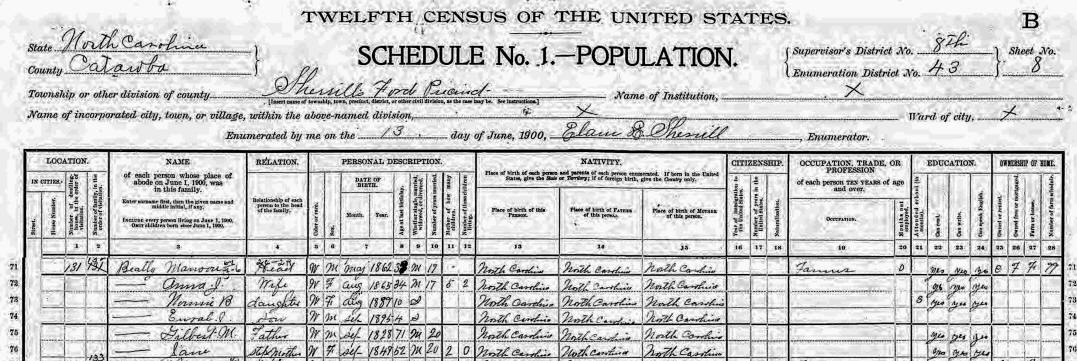 TWELFTH CENSUS OF THE UNITED STATES.
B
State North Carolina
County Catawba
SCHEDULE No. 1.—POPULATION.
Supervisor's District No. 8th
Enumeration District No. 43
Sheet No.
8
Township or other division of county Sherrills Ford Precinct
[Insert name of township, town, precinct, district, or other civil division, as the case may be. See instructions.]
Name of Institution, X
Name of incorporated city, town, or village, within the above-named division, X
Ward of city, X
Enumerated by me on the 13 day of June, 1900, Elam Sherrill, Enumerator.
LOCATION. NAME RELATION. PERSONAL DESCRIPTION. NATIVITY. CITIZENSHIP. OCCUPATION, TRADE, OR PROFESSION EDUCATION. OWNERSHIP OF HOME.
IN CITIES.
Street.
House Number.
of each person whose place of abode on June 1, 1900, was in this family.
Enter surname first, then the given name and middle initial, if any.
Include every person living on June 1, 1900.
Omit children born since June 1, 1900.
Relationship of each person to the head of the family.
Color or race.
Sex.
DATE OF BIRTH.
Month. Year.
Age at last birthday.
Place of birth of each person and parents of each person enumerated. If born in the United States, give the State or Territory; if of foreign birth, give the Country only.
Place of birth of this PERSON.
Place of birth of FATHER of this person.
Place of birth of MOTHER of this person.
of each person TEN YEARS of age and over.
OCCUPATION.
1 2 3 4 5 6 7 8 9 10 11 12 13 14 15 16 17 18 19 20 21 22 23 24 25 26 27 28
71 131 Beatty Head W M May 1862 M 17 North Carolina North Carolina North Carolina Farmer 0 yes yes yes O F F 77 71
72 Anna J. Wife W F Aug 1865 34 M 17 North Carolina North Carolina North Carolina yes yes yes 72
73 B daughter W F Aug 10 S North Carolina North Carolina North Carolina yes yes yes 73
74 Son W M 1895 4 S North Carolina North Carolina North Carolina 74
75 Gilbert M. Father W M Sep 1828 71 M 20 North Carolina North Carolina North Carolina yes yes yes 75
76 Jane Step Mother W F Sep 52 M 20 2 0 North Carolina North Carolina North Carolina yes yes yes 76
133